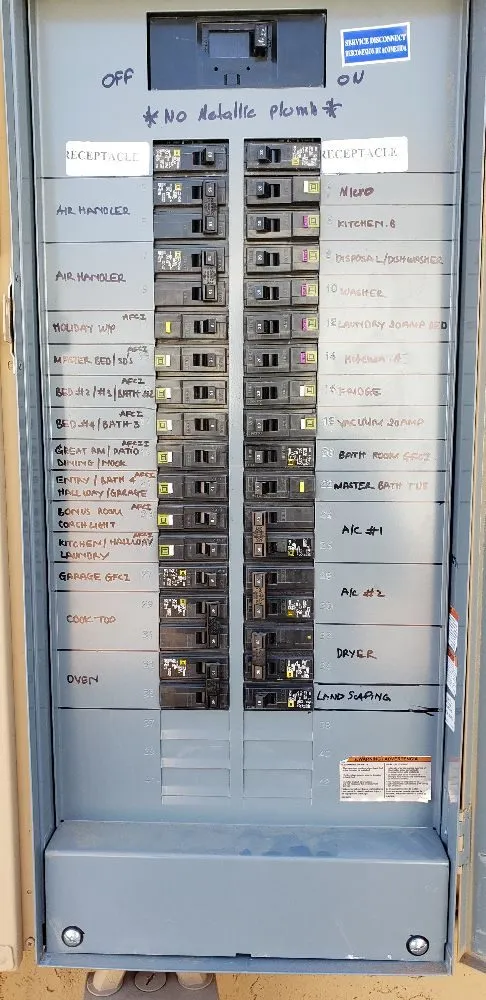 SERVICE DISCONNECT
OFF
ON
* No Metallic Plumb *
RECEPTACLE
AIR HANDLER
AIR HANDLER
HOLIDAY W/P AFCI
MASTER BED/SD'S AFCI
BED #2/#3/BATH #2 AFCI
BED #4/BATH-3 AFCI
GREAT RM/PATIO AFCI
DINING/NOOK
ENTRY/BATH 4 AFCI
HALLWAY/GARAGE
BONUS ROOM AFCI
COACH LIGHT
KITCHEN/HALLWAY AFCI
LAUNDRY
GARAGE GFCI 27
COOK-TOP 29
31
OVEN
35
37
RECEPTACLE
MICRO
KITCHEN.B
8 DISPOSAL/DISHWASHER
10 WASHER
12 LAUNDRY 20AMP DED
14 KITCHEN
16 FRIDGE
18 VACUUM 20AMP
20 BATH ROOM GFCI
22 MASTER BATH TUB
A/C #1
A/C #2
DRYER
LANDSCAPING
38
WARNING/ADVERTENCIA